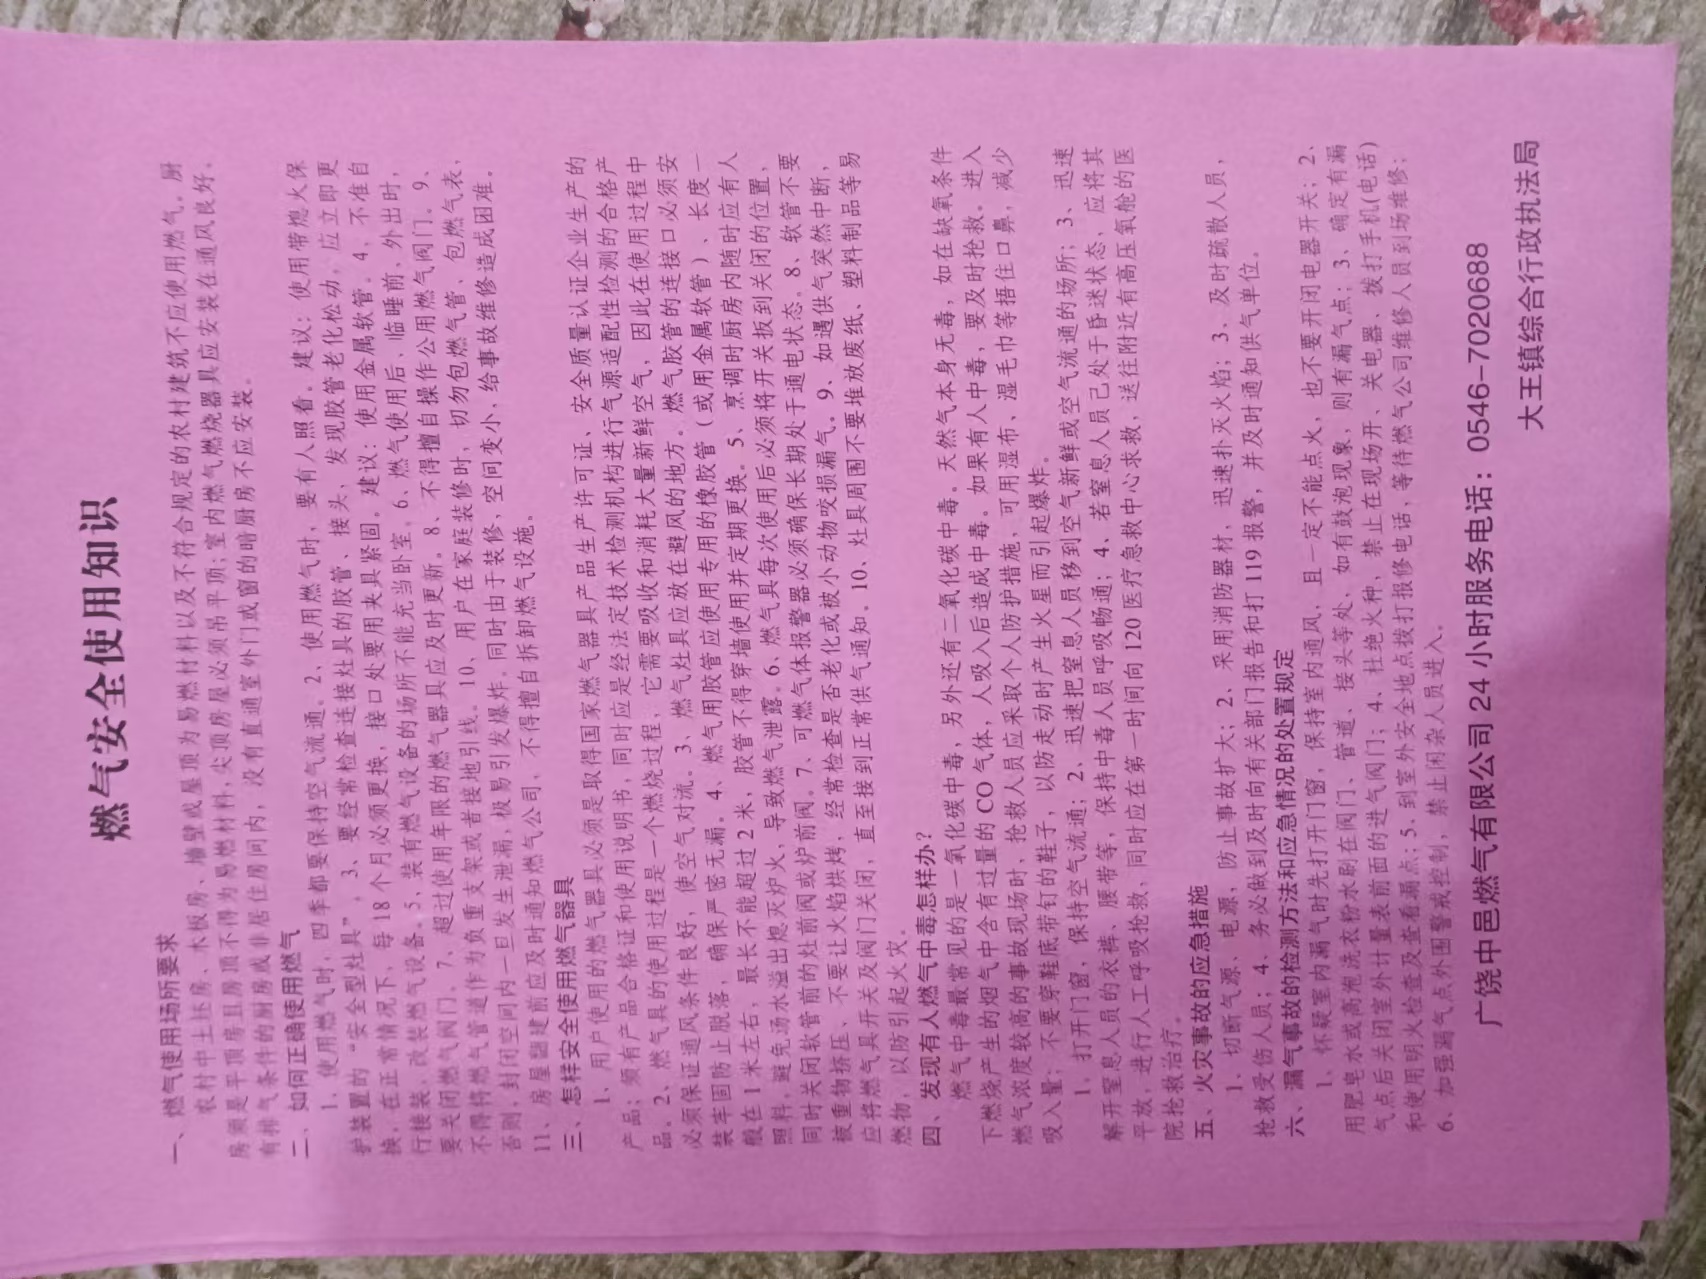 燃气安全使用知识
一、燃气使用场所要求
农村中土坯房、木板房、墙壁或屋顶为易燃材料以及不符合规定的农村建筑不应使用燃气。厨
房须是平顶房且房顶不得为易燃材料,尖顶房屋必须吊平顶;室内燃气燃烧器具应安装在通风良好、
有排气条件的厨房或非居住房间内,没有直通室外门或窗的暗厨房不应安装。
二、如何正确使用燃气
1、使用燃气时,四季都要保持空气流通。2、使用燃气时,要有人照看。建议:使用带熄火保
护装置的“安全型灶具”。3、要经常检查连接灶具的胶管、接头、发现胶管老化松动,应立即更
换,在正常情况下,每18个月必须更换,接口处要用夹具紧固。建议:使用金属软管。4、不准自
行接装、改装燃气设备。5、装有燃气设备的场所不能充当卧室。6、燃气使用后、临睡前、外出时,
要关闭燃气阀门。7、超过使用年限的燃气器具应及时更新。8、不得擅自操作公用燃气阀门。9、
不得将燃气管道作为负重支架或者接地引线。10、用户在家庭装修时,切勿包燃气管、包燃气表,
否则,封闭空间内一旦发生泄漏,极易引发爆炸。同时由于装修、空间变小、给事故维修造成困难。
11、房屋翻建前应及时通知燃气公司,不得擅自拆卸燃气设施。
三、怎样安全使用燃气器具
1、用户使用的燃气器具必须是取得国家燃气器具产品生产许可证、安全质量认证企业生产的
产品;须有产品合格证和使用说明书,同时应是经法定技术检测机构进行气源适配性检测的合格产
品。2、燃气具的使用过程是一个燃烧过程,它需要吸收和消耗大量新鲜空气,因此在使用过程中
必须保证通风条件良好,使空气对流。3、燃气灶具应放在避风的地方。燃气胶管的连接口必须安
装牢固防止脱落,确保严密无漏。4、燃气用胶管应使用专用的橡胶管(或用金属软管)、长度一
般在1米左右,最长不能超过2米,胶管不得穿墙使用并定期更换。5、烹调时厨房内随时应有人
照料,避免汤水溢出熄灭炉火,导致燃气泄露。6、燃气具每次使用后必须将开关扳到关闭的位置,
同时关闭软管前的灶前阀或炉前阀。7、可燃气体报警器必须确保长期处于通电状态。8、软管不要
被重物挤压、不要让火焰烘烤,经常检查是否老化或被小动物咬损漏气。9、如遇供气突然中断,
应将燃气具开关及阀门关闭,直至接到正常供气通知。10、灶具周围不要堆放废纸、塑料制品等易
燃物,以防引起火灾。
四、发现有人燃气中毒怎样办?
燃气中毒最常见的是一氧化碳中毒,另外还有二氧化碳中毒。天然气本身无毒,如在缺氧条件
下燃烧产生的烟气中含有过量的CO气体,人吸入后造成中毒。如果有人中毒,要及时抢救。进入
燃气浓度较高的事故现场时、抢救人员应采取个人防护措施,可用湿布、湿毛巾等捂住口鼻,减少
吸入量;不要穿鞋底带钉的鞋子,以防走动时产生火星而引起爆炸。
1、打开门窗,保持空气流通;2、迅速把窒息人员移到空气新鲜或空气流通的场所;3、迅速
解开窒息人员的衣裤、腰带等,保持中毒人员呼吸畅通;4、若窒息人员已处于昏迷状态,应将其
平放,进行人工呼吸抢救,同时应在第一时间向120医疗急救中心求救,送往附近有高压氧舱的医
院抢救治疗。
五、火灾事故的应急措施
1、切断气源、电源,防止事故扩大;2、采用消防器材,迅速扑灭火焰;3、及时疏散人员,
抢救受伤人员;4、务必做到及时向有关部门报告和打119报警,并及时通知供气单位。
六、漏气事故的检测方法和应急情况的处置规定
1、怀疑室内漏气时先打开门窗,保持室内通风,且一定不能点火,也不要开闭电器开关;2、
用肥皂水或高泡洗衣粉水刷在阀门、管道、接头等处,如有鼓泡现象,则有漏气点;3、确定有漏
气点后关闭室外计量表前面的进气阀门;4、杜绝火种,禁止在现场开、关电器、拨打手机(电话)
和使用明火检查及查看漏点;5、到室外安全地点拨打报修电话,等待燃气公司维修人员到场维修;
6、加强漏气点外围警戒控制,禁止闲杂人员进入。
广饶中邑燃气有限公司24小时服务电话:0546-7020688
大王镇综合行政执法局